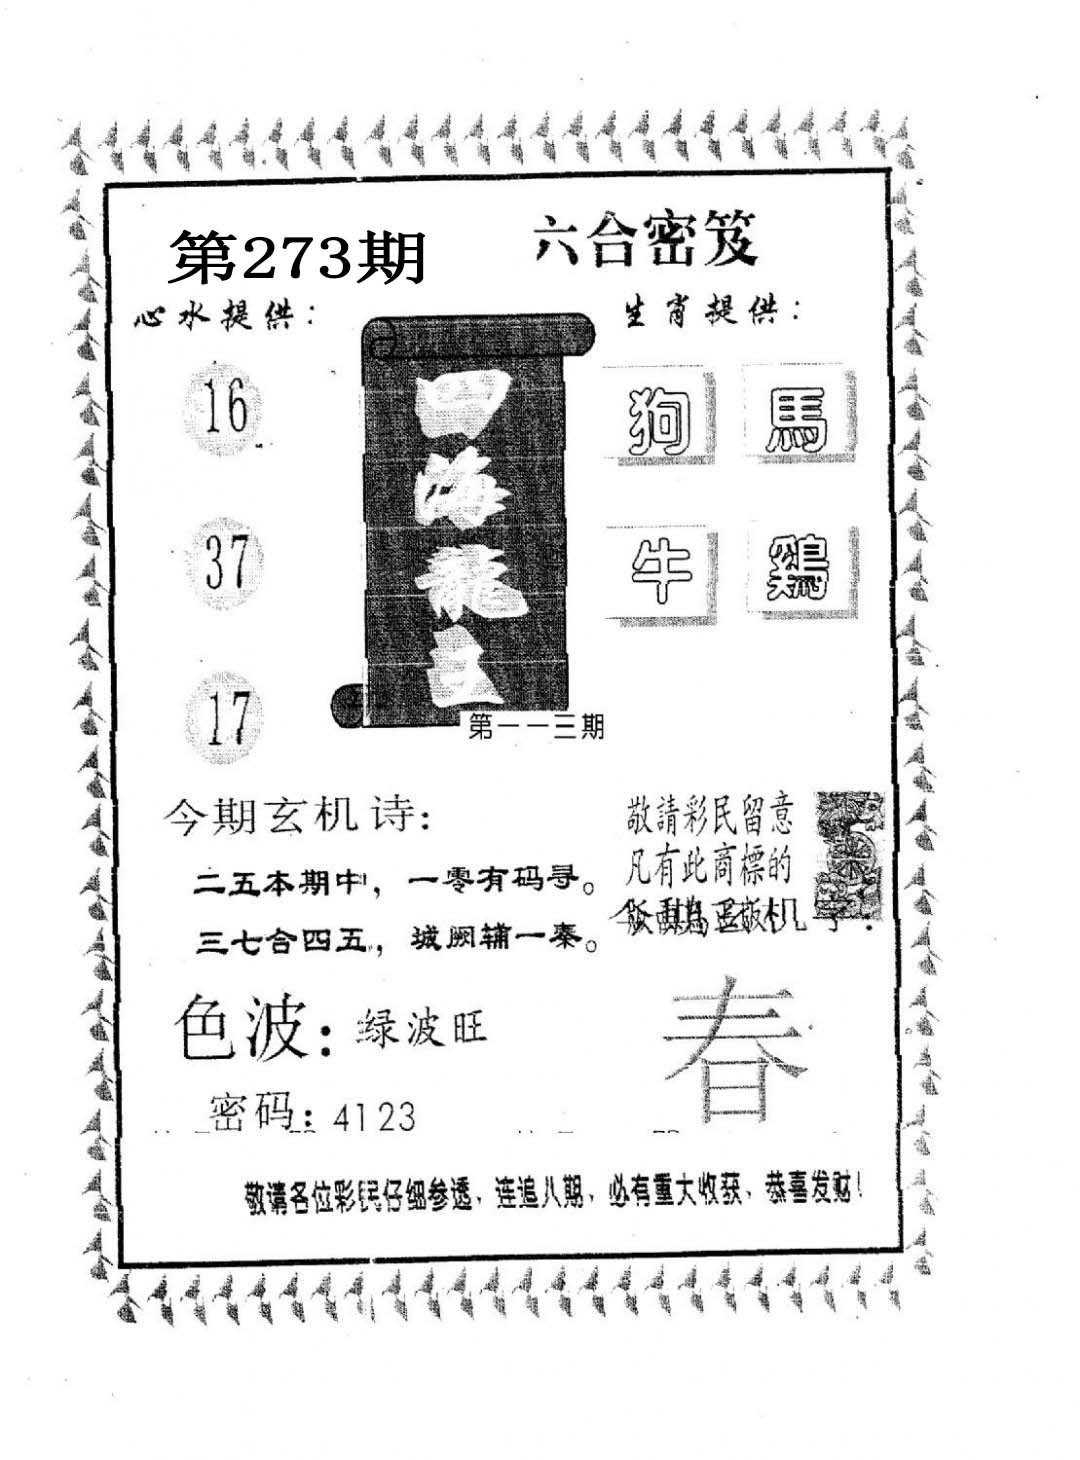 第273期
六合密笈
心水提供：
生肖提供：
16
37
17
四海龍王
狗 馬
牛 鷄
第一一三期
今期玄机诗：
二五本期中，一零有码寻。
三七合四五，城阙辅一秦。
敬請彩民留意
凡有此商標的
色波：绿波旺
春
密码：4123
敬请各位彩民仔细参透、连追八期、必有重大收获、恭喜发财！